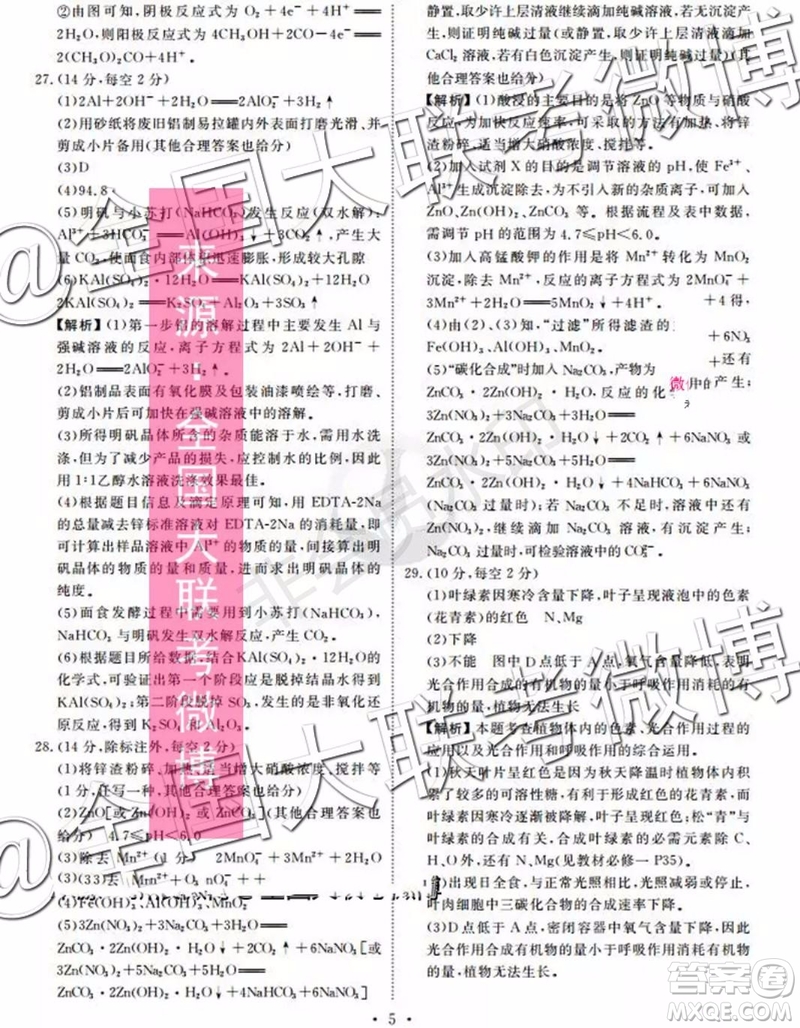 ②由图可知,阴极反应式为 O₂+4e⁻+4H⁺══
2H₂O,则阳极反应式为 4CH₃OH+2CO-4e⁻══
2(CH₃O)₂CO+4H⁺。
27.(14 分,每空 2 分)
(1)2Al+2OH⁻+2H₂O══2AlO₂⁻+3H₂↑
(2)用砂纸将废旧铝制易拉罐内外表面打磨光滑,并
剪成小片备用(其他合理答案也给分)
(3)D
(4)94.8
(5)明矾与小苏打(NaHCO₃)发生反应(双水解),
Al³⁺+3HCO₃⁻══Al(OH)₃↓+3CO₂↑,产生大
量 CO₂,使面食内部体积迅速膨胀,形成较大孔隙
(6)KAl(SO₄)₂·12H₂O══KAl(SO₄)₂+12H₂O
2KAl(SO₄)₂══K₂SO₄+Al₂O₃+3SO₃↑
【解析】(1)第一步铝的溶解过程中主要发生 Al 与
强碱溶液的反应,离子方程式为 2Al+2OH⁻+
2H₂O══2AlO₂⁻+3H₂↑。
(2)铝制品表面有氧化膜及包装油漆喷绘等,打磨、
剪成小片后可加快在强碱溶液中的溶解。
(3)所得明矾晶体所含的杂质能溶于水,需用水洗
涤,但为了减少产品的损失,应控制水的比例,因此,
用 1∶1乙醇水溶液洗涤效果最佳。
(4)根据题目信息及滴定原理可知,用 EDTA-2Na
的总量减去锌标准溶液对 EDTA-2Na 的消耗量,即
可计算出样品溶液中 Al³⁺的物质的量,间接算出明
矾晶体的物质的量和质量,进而求出明矾晶体的
纯度。
(5)面食发酵过程中需要用到小苏打(NaHCO₃),
NaHCO₃ 与明矾发生双水解反应产生 CO₂。
(6)根据题目所给数据,结合KAl(SO₄)₂·12H₂O 的
化学式,可验证出第一个阶段是脱掉结晶水得到
KAl(SO₄)₂,第二阶段脱掉 SO₃,发生的是非氧化还
原反应,得到 K₂SO₄ 和 Al₂O₃。
28.(14 分,除标注外,每空 2 分)
(1)将锌渣粉碎、加热、适当增大硝酸浓度、搅拌等
(1 分,任写一种,其他合理答案也给分)
(2)ZnO[或 Zn(OH)₂或 ZnCO₃](其他合理答案也
给分)  4.7≤pH<6.0
(3)除去 Mn²⁺(1 分)  2MnO₄⁻+3Mn²⁺+2H₂O
(4)Fe(OH)₃、Al(OH)₃、MnO₂
(5)3Zn(NO₃)₂+3Na₂CO₃+3H₂O══
ZnCO₃·2Zn(OH)₂·H₂O↓+2CO₂↑+6NaNO₃[或
3Zn(NO₃)₂+5Na₂CO₃+5H₂O══
ZnCO₃·2Zn(OH)₂·H₂O↓+4NaHCO₃+6NaNO₃]
静置,取少许上层清液继续滴加纯碱溶液,若无沉淀产
生,则证明纯碱过量(或静置,取少许上层清液滴加
CaCl₂ 溶液,若有白色沉淀产生,则证明纯碱过量)(其
他合理答案也给分)
【解析】(1)酸浸的主要目的是将 ZnO 等物质与硝酸
反应,为加快反应速率,可采取的方法有加热、将锌
渣粉碎、适当增大硝酸浓度、搅拌等。
(2)加入试剂 X 的目的是调节溶液的 pH,使 Fe³⁺、
Al³⁺生成沉淀除去,不引入新的杂质离子,可加入
ZnO、Zn(OH)₂、ZnCO₃ 等。根据流程的信息,
需调节 pH 的范围为 4.7≤pH<6.0。
(3)加入高锰酸钾的作用是将 Mn²⁺转化为 MnO₂
沉淀,除去 Mn²⁺,反应的离子方程式为 2MnO₄⁻+
3Mn²⁺+2H₂O══5MnO₂↓+4
(4)由(2)、(3)得,“过滤”所得滤渣的
Fe(OH)₃、Al(OH)₃、MnO₂。
(5)“碳化合成”时加入 Na₂CO₃,产物为
ZnCO₃·2Zn(OH)₂·H₂O,反应的化
3Zn(NO₃)₂+3Na₂CO₃+3H₂O══
ZnCO₃·2Zn(OH)₂·H₂O↓+2CO₂↑+6NaNO₃或
3Zn(NO₃)₂+5Na₂CO₃+5H₂O══
ZnCO₃·2Zn(OH)₂·H₂O↓+4NaHCO₃+6NaNO₃
(Na₂CO₃ 过量时);若 Na₂CO₃ 不足时,溶液中还有
Zn(NO₃)₂,继续滴加 Na₂CO₃ 溶液,有沉淀产生。
Na₂CO₃ 过量时,可检验溶液中的 CO₃²⁻。
29.(10 分,每空 2 分)
(1)叶绿素因寒冷含量下降,叶子呈现液泡中的色素
(花青素)的红色  N、Mg
(2)下降
(3)不能  图中 D 点低于 A 点,氧气含量降低,表明
光合作用合成有机物的量小于呼吸作用消耗的有
机物的量,植物无法生长
【解析】本题考查植物体内的色素,光合作用过程的
应用以及光合作用和呼吸作用的综合运用。
(1)秋天叶片呈红色是因为秋天降温时植物体内积
累了较多的可溶性糖,有利于形成红色的花青素,而
叶绿素因寒冷逐渐被降解,叶子呈现红色;松“青”与
叶绿素有关,合成叶绿素的必需元素除了 C、H、O
之外,还有 N、Mg(见必修一 P35)。
(2)出现日全食,与正常光照相比,光照强度下降,则
叶肉细胞中三碳化合物的合成速率下降。
(3)D 点低于 A 点,密闭容器中氧气的量下降,因此
光合作用合成有机物的量小于呼吸作用消耗的有
机物的量,植物无法生长。
·5·
@全国大联考微博
来源:全国大联考微博
非会员水印
作业精灵